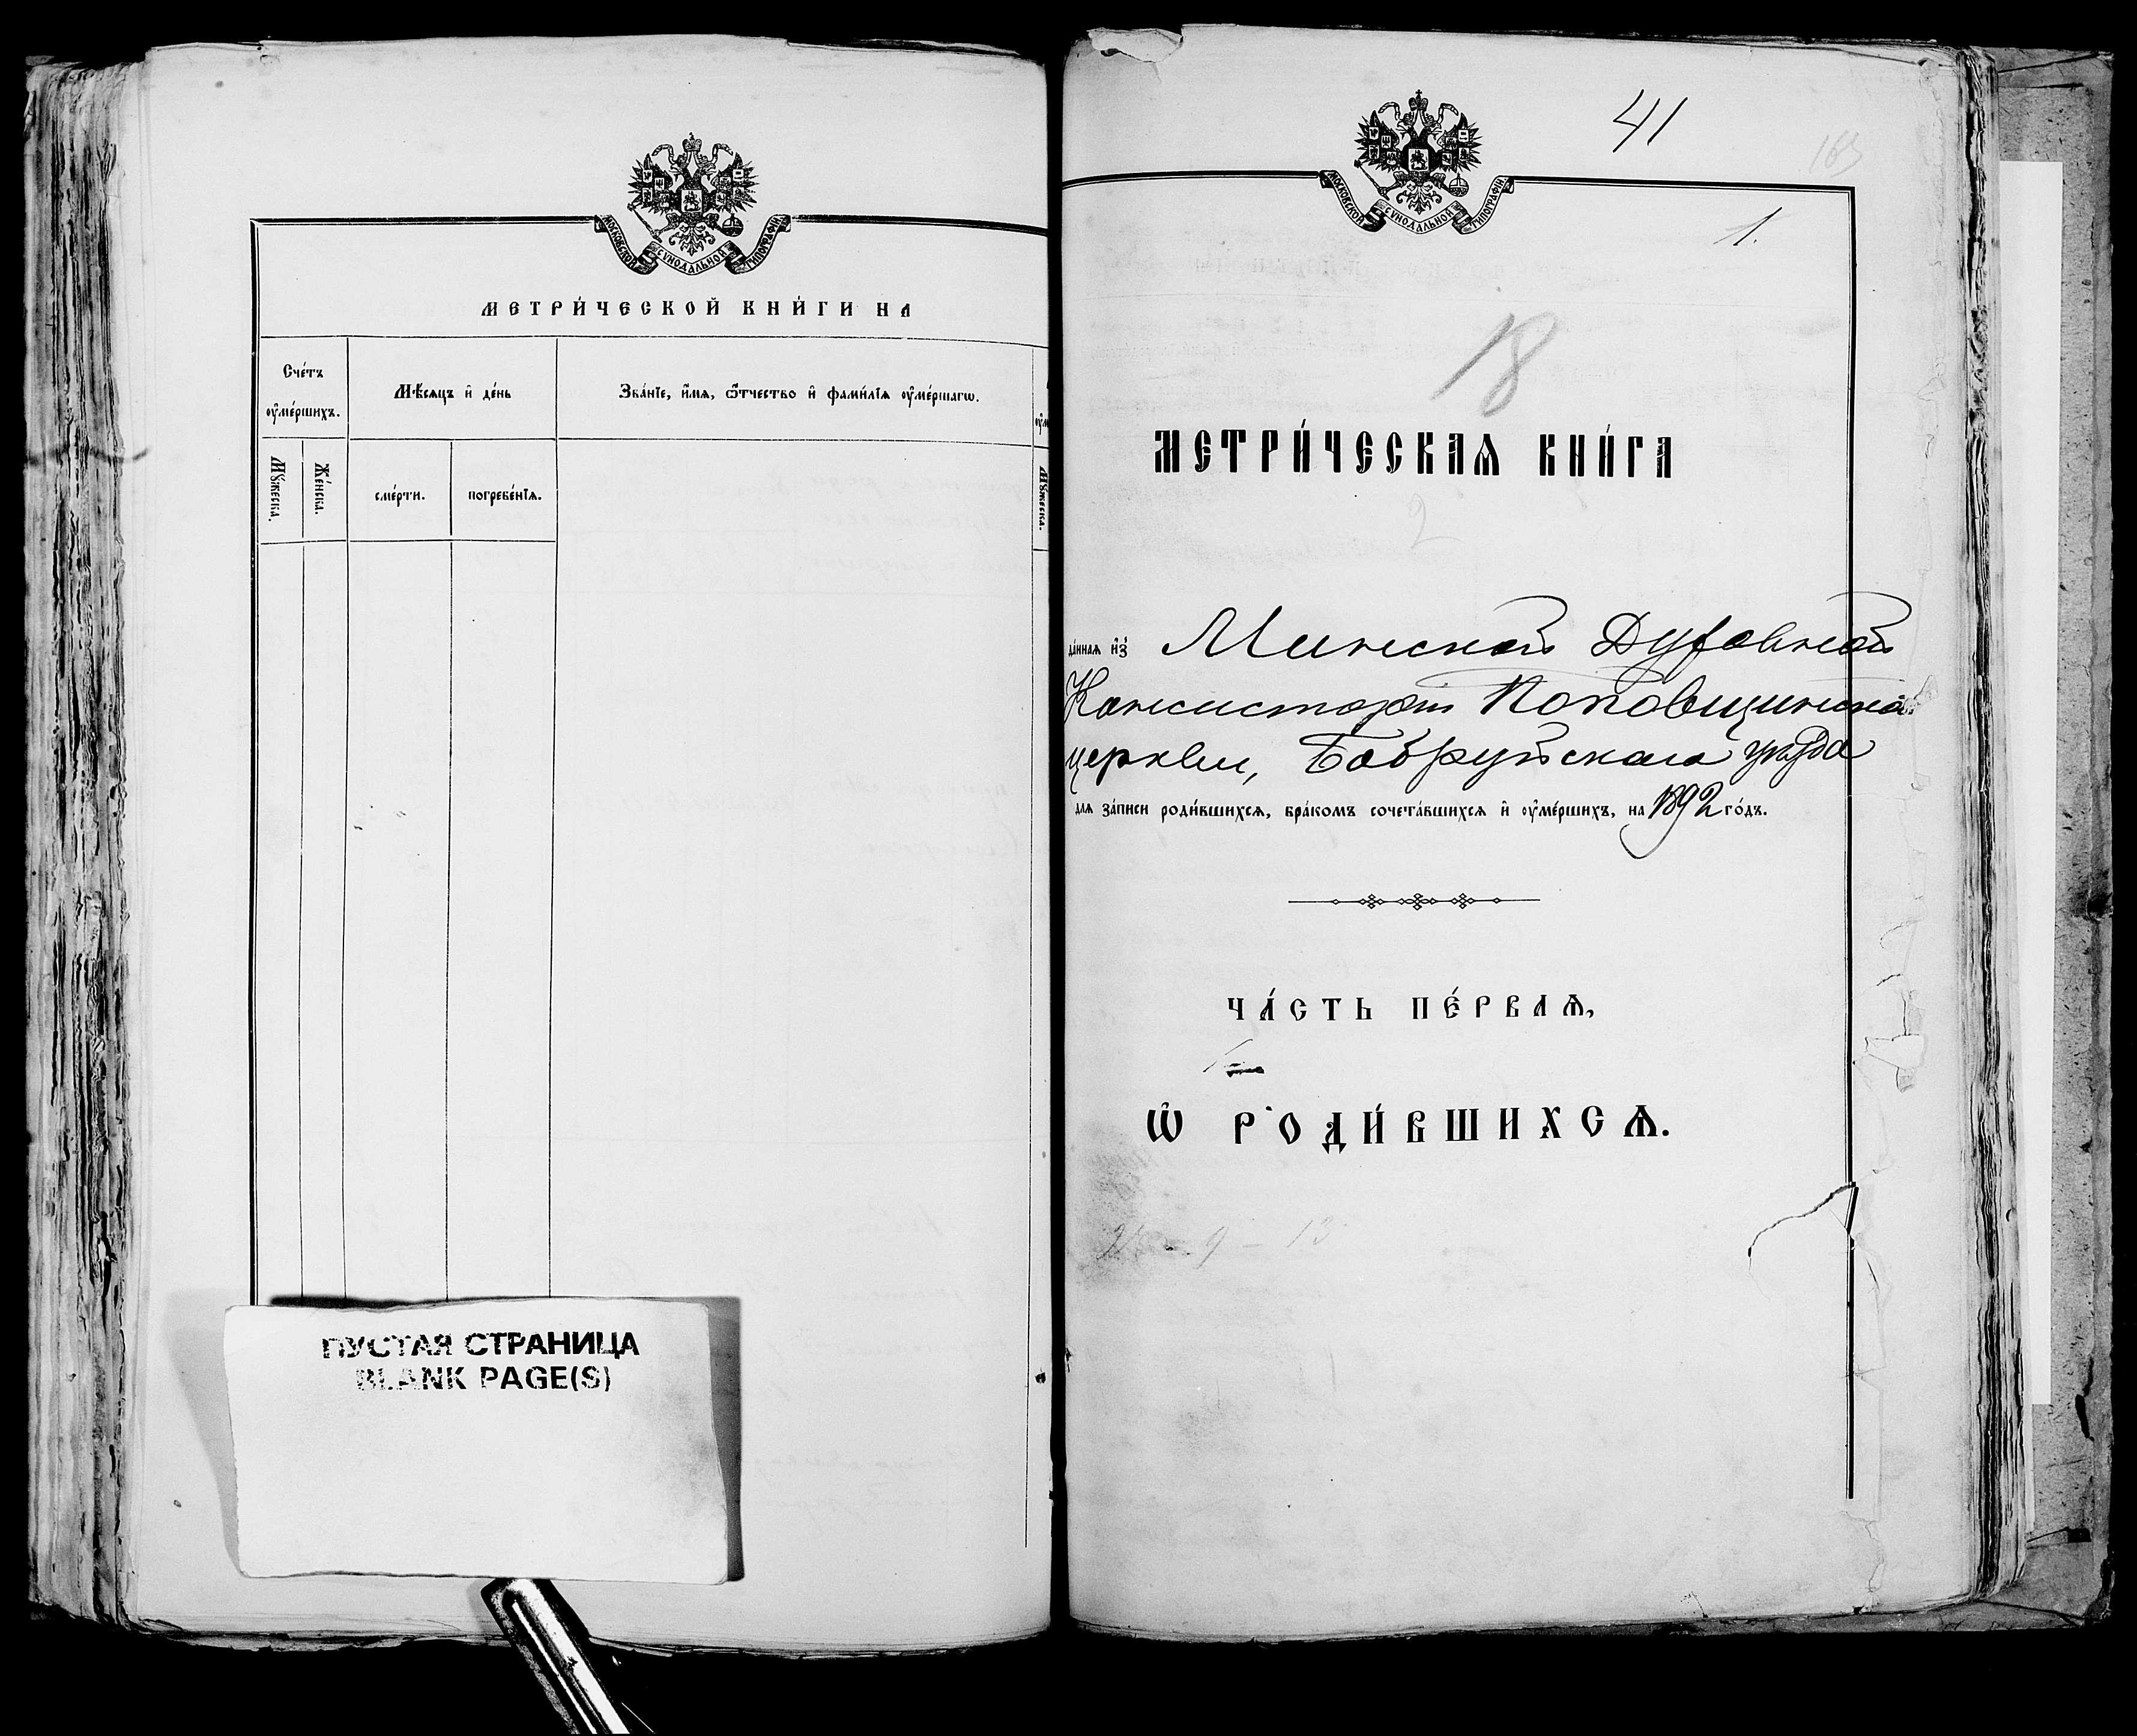 МОСКОВСКОЙ СѴНОДАЛЬНОЙ ТИПОГРАФІИ
МЕТРИ́ЧЕСКОЙ КНИ́ГИ НА
Сче́тъ ᲂу҆ме́ршихъ.
Мѣ́сяцъ и҆ де́нь
Зва́нїе, и҆́мѧ, ѻ҆́тчество и҆ фами́лїѧ ᲂу҆ме́ршагѡ.
Мꙋ́жеска.
Же́нска.
сме́рти.
погребе́нїѧ.
Мꙋ́жеска.
ПУСТАЯ СТРАНИЦА
BLANK PAGE(S)
41
163
МОСКОВСКОЙ СѴНОДАЛЬНОЙ ТИПОГРАФІИ
1.
18
МЕТРИ́ЧЕСКАѦ КНИ́ГА
2
да́ннаѧ и҆з̾ Минской Духовной
Консисторіи Поповщинской
церкви, Бобруйскаго уѣзда
для за́писи роди́вшихсѧ, бра́комъ сочета́вшихсѧ и҆ ᲂу҆ме́ршихъ, на 1892 го́дъ.
ЧА́СТЬ ПЕ́РВАѦ,
Ѡ҆ РОДИ́ВШИХСѦ.
9 – 13